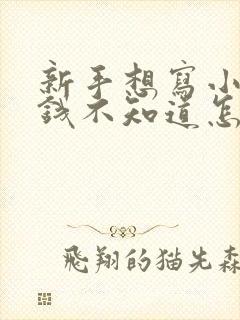 新手想寫小
錢不知道怎
飛翔的貓先森